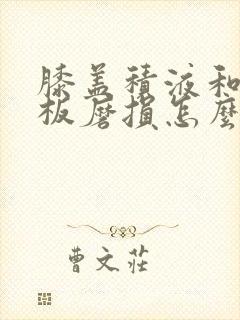 膝盖积液和
板磨损怎麼
曹文莊